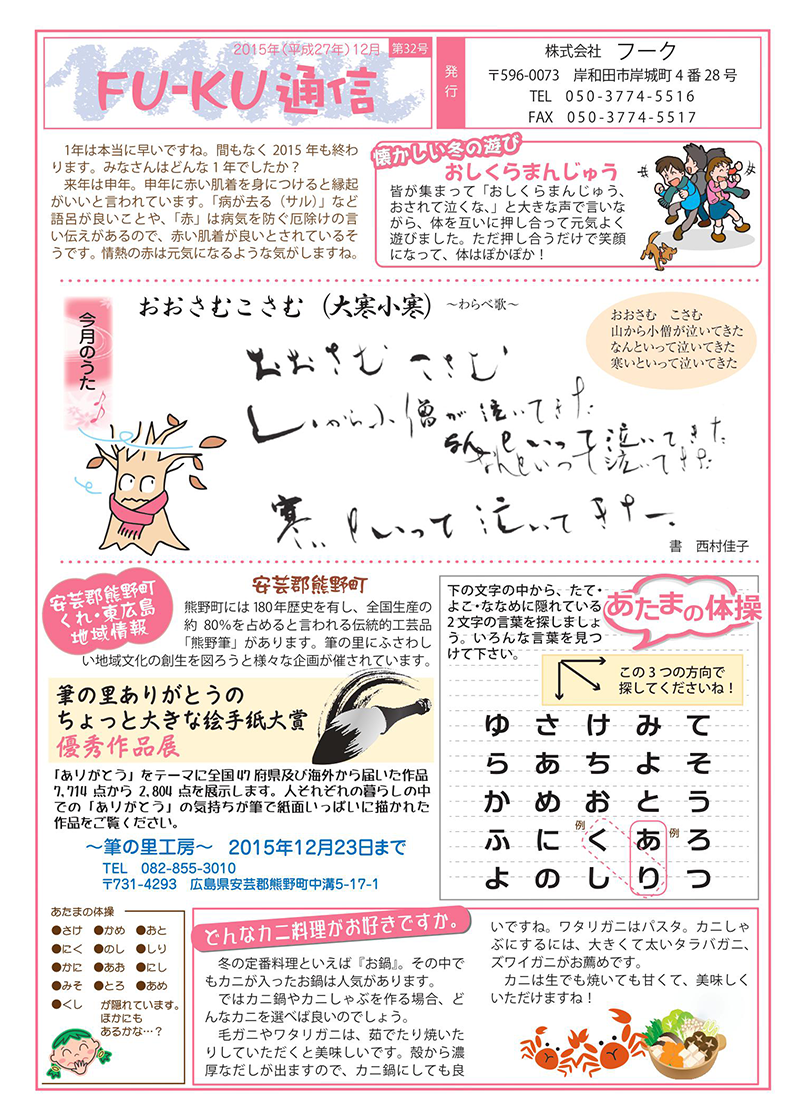 2015年（平成27年）12月 第32号
FU-KU 通信
発行
株式会社 フーク
〒596-0073 岸和田市岸城町4番28号
TEL 050-3774-5516
FAX 050-3774-5517
1年は本当に早いですね。間もなく2015年も終わ
ります。みなさんはどんな1年でしたか？
来年は申年。申年に赤い肌着を身につけると縁起
がいいと言われています。「病が去る（サル）」など
語呂が良いことや、「赤」は病気を防ぐ厄除けの言
い伝えがあるので、赤い肌着が良いとされているそ
うです。情熱の赤は元気になるような気がしますね。
懐かしい冬の遊び
おしくらまんじゅう
皆が集まって「おしくらまんじゅう、
おされて泣くな、」と大きな声で言いな
がら、体を互いに押し合って元気よく
遊びました。ただ押し合うだけで笑顔
になって、体はぽかぽか！
今月のうた
おおさむこさむ（大寒小寒）～わらべ歌～
おおさむ こさむ
山から小僧が泣いてきた
なんといって泣いてきた
寒いといって泣いてきた
おおさむ こさむ
山から小僧が泣いてきた
なんといって泣いてきた
なんといって泣いてきた
寒いといって泣いてきたー。
書 西村佳子
安芸郡熊野町
くれ・東広島
地域情報
安芸郡熊野町
熊野町には180年歴史を有し、全国生産の
約80％を占めると言われる伝統的工芸品
「熊野筆」があります。筆の里にふさわし
い地域文化の創生を図ろうと様々な企画が催されています。
筆の里ありがとうの
ちょっと大きな絵手紙大賞
優秀作品展
「ありがとう」をテーマに全国47府県及び海外から届いた作品
7,714点から2,804点を展示します。人それぞれの暮らしの中
での「ありがとう」の気持ちが筆で紙面いっぱいに描かれた
作品をご覧ください。
～筆の里工房～ 2015年12月23日まで
TEL 082-855-3010
〒731-4293 広島県安芸郡熊野町中溝5-17-1
あたまの体操
下の文字の中から、たて・
よこ・ななめに隠れている
2文字の言葉を探しましょ
う。いろんな言葉を見つ
けて下さい。
この3つの方向で
探してくださいね！
ゆ さ け み て
ら あ ち よ そ
か め お と う
ふ に 例 く あ 例 ろ
よ の し り つ
あたまの体操
●さけ ●かめ ●おと
●にく ●のし ●しり
●かに ●あお ●にし
●みそ ●とろ ●あめ
●くし が隠れています。
ほかにも
あるかな…？
どんなカニ料理がお好きですか。
冬の定番料理といえば『お鍋』。その中で
もカニが入ったお鍋は人気があります。
ではカニ鍋やカニしゃぶを作る場合、ど
んなカニを選べば良いのでしょう。
毛ガニやワタリガニは、茹でたり焼いた
りしていただくと美味しいです。殻から濃
厚なだしが出ますので、カニ鍋にしても良
いですね。ワタリガニはパスタ。カニしゃ
ぶにするには、大きくて太いタラバガニ、
ズワイガニがお薦めです。
カニは生でも焼いても甘くて、美味しく
いただけますね！